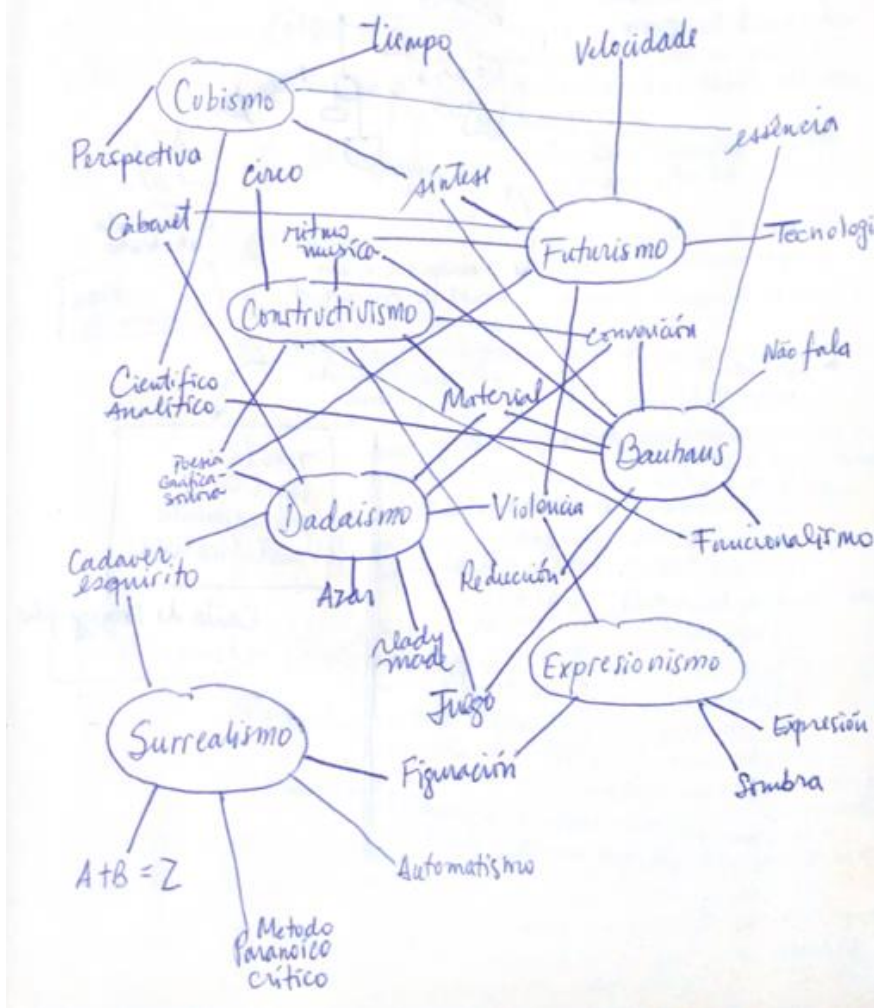 tiempo
Velocidade
Cubismo
essência
Perspectiva
circo
síntese
Cabaret
ritmo
musica
Futurismo
Tecnologi
Constructivismo
convención
Não fala
Cientifico
Analítico
Material
Bauhaus
Poesia
Gráfica-
sonora
Dadaismo
Violencia
Funcionalismo
Cadaver
esquisito
Azar
Reducción
ready
made
Expresionismo
Juego
Surrealismo
Figuración
Expresión
Sombra
A+B=Z
Automatismo
Metodo
Paranoico
crítico